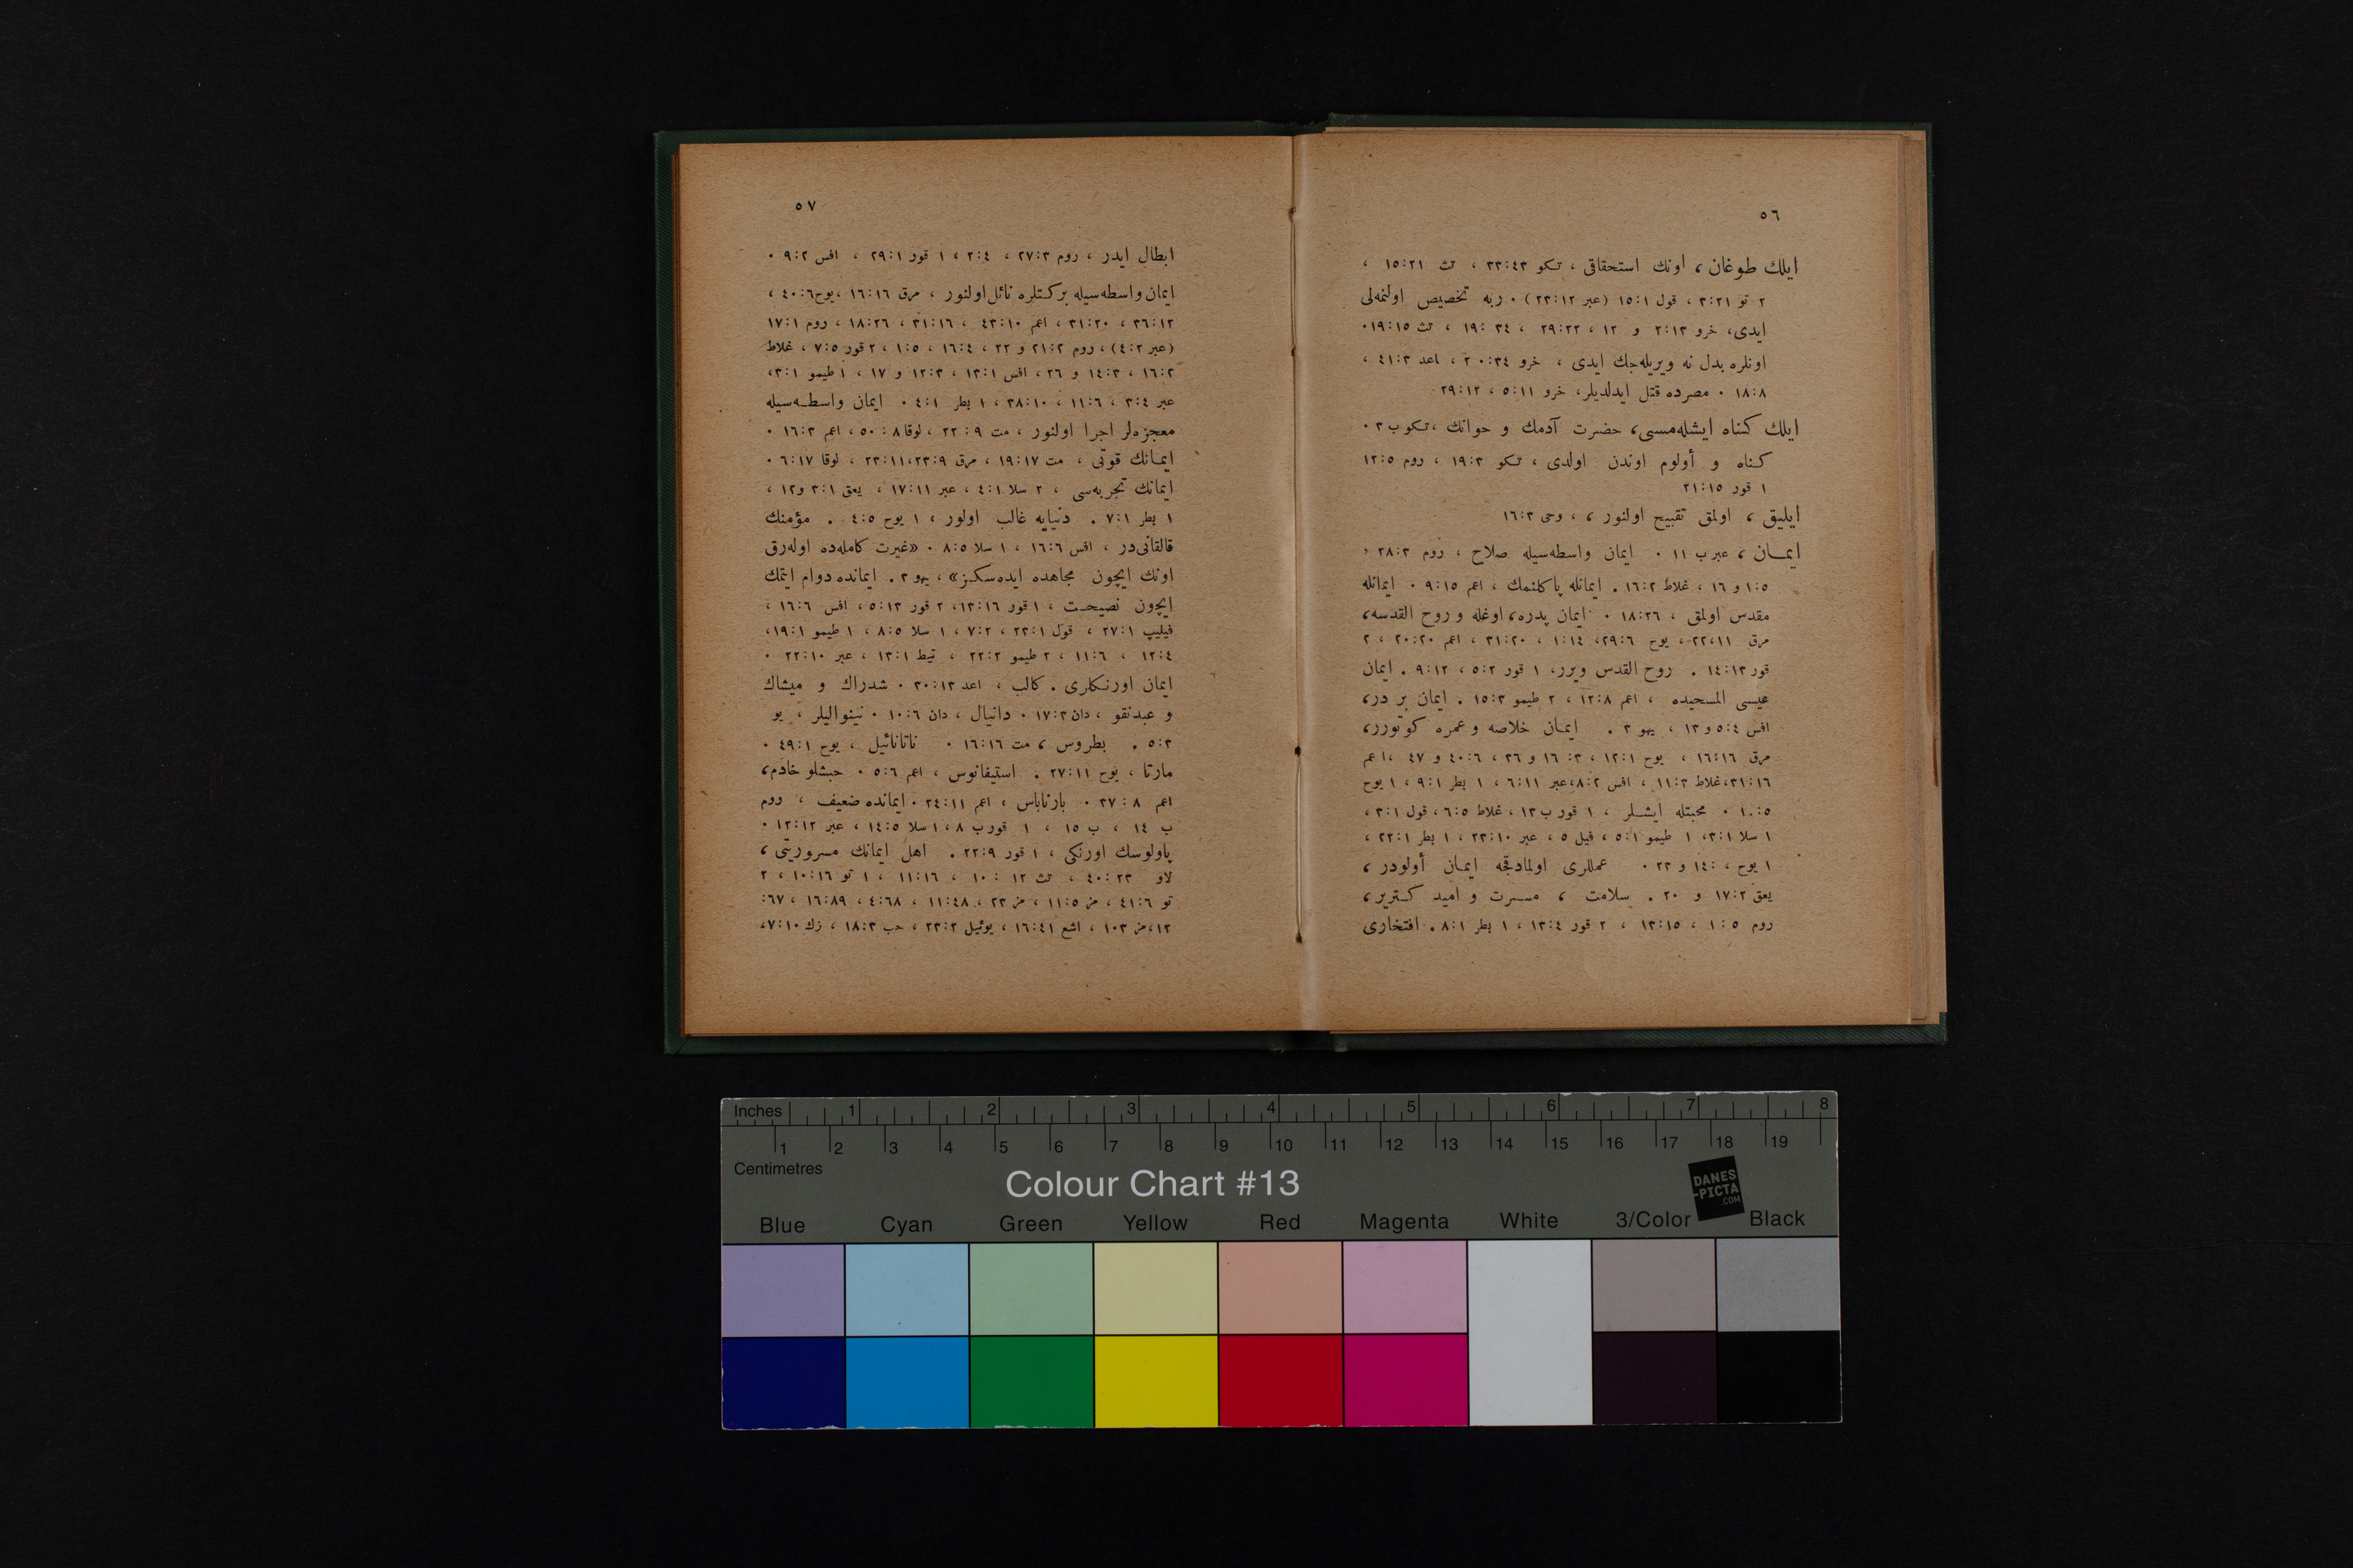 ٥٦
ایلك طوغان، اونك استحقاقی ، تكو ٣٣:٤٣ ، تث ١٥:٢١ ،
٢ تو ٣:٢١ ، قول ١٥:١ (عبر ٢٣:١٢) . ربه تخصیص اولنمه‌لی
ایدی، خرو ٢:١٣ و ١٢ ، ٢٩:٢٢ ، ٣٤ :١٩ ، تث ١٩:١٥.
اونلره بدل نه ویریله‌جك ایدی ، خرو ٢٠:٣٤ ، اعد ٤١:٣ ،
١٨:٨ . مصرده قتل ایدلدیلر، خرو ٥:١١ ، ٢٩:١٢
ایلك كناه ایشله‌مسی، حضرت آدمك و حوانك ، تكو ب ٣ .
كناه و أولوم اوندن اولدی ، تكو ١٩:٣ ، روم ١٢:٥
١ قور ٢١:١٥
ایلیق ، اولمق تقبیح اولنور ، ، وحی ١٦:٣
ایمـان ، عبر ب ١١ . ایمان واسطه‌سیله صلاح ، روم ٢٨:٣ ،
١:٥ و ١٦ ، غلاط ١٦:٢ . ایمانله پاكلنمك ، اعم ٩:١٥ . ایمانله
مقدس اولمق ، ١٨:٢٦ . ایمان پدره، اوغله و روح القدسه،
مرق ٢٢،١١ ، یوح ٢٩:٦، ١:١٤ ، ٣١:٢٠ ، اعم ٢٠:٢٠ ، ٢
قور ١٤:١٣ . روح القدس ویرر، ١ قور ٥:٢ ، ٩:١٢ . ایمان
عیسی المسحیده ، اعم ١٢:٨ ، ٢ طیمو ١٥:٣ . ایمان بر در،
افس ٥:٤ و ١٣ ، یهو ٣ . ایمـان خلاصه و عمره كوتورر،
مرق ١٦:١٦ ، یوح ١٢:١ ، ٣: ١٦ و ٣٦ ، ٤٠:٦ و ٤٧ ، اعم
٣١:١٦، غلاط ١١:٣ ، افس ٨:٢، عبر ٦:١١ ، ١ بطر ٩:١ ، ١ یوح
١٠:٥ . محبتله ایشـلر ، ١ قور ب ١٣ ، غلاط ٦:٥ ، قول ٣:١ ،
١ سلا ٣:١، ١ طیمو ٥:١ ، فیل ٥ ، عبر ٢٣:١٠ ، ١ بطر ٢٢:١ ،
١ یوح ، :١٤ و ٢٣ . عمللری اولمادقجه ایمـان أولودر ،
یعق ١٧:٢ و ٢٠ . سلامت ، مسـرت و امید كـتریر،
روم ١:٥ ، ١٣:١٥ ، ٢ قور ١٣:٤ ، ١ بطر ٨:١ . افتخاری
٥٧
ابطال ایدر ، روم ٢٧:٣ ، ٢:٤ ، ١ قور ٢٩:١ ، افس ٩:٢ .
ایمان واسطه‌سیله بركـتلره نائل اولنور ، مرق ١٦:١٦ ، یوح ٤٠:٦ ،
٣٦:١٢ ، ٣١:٢٠ ، اعم ٤٣:١٠ ، ٣١:١٦ ، ١٨:٢٦ ، روم ١٧:١
(عبر ٤:٢) ، روم ٢١:٢ و ٢٢ ، ١٦:٤ ، ١:٥ ، ٢ قور ٧:٥ ، غلاط
١٦:٢ ، ١٤:٣ و ٢٦ ، افس ١٣:١ ، ١٢:٣ و ١٧ ، ١ طیمو ٣:١،
عبر ٣:٤ ، ١١:٦ ، ٣٨:١٠ ، ١ بطر ٤:١ . ایمان واسطـه‌سیله
معجزه‌لر اجرا اولنور ، مت ٩ :٢٢ ، لوقا ٨ :٥٠ ، اعم ١٦:٣ .
ایمـانك قوتی ، مت ١٩:١٧ ، مرق ٢٣:٩، ٢٣:١١ ، لوقا ٦:١٧ .
ایمانك تجربه‌سی ، ٢ سلا ٤:١ ، عبر ١٧:١١ ، یعق ٣:١ و١٢ ،
١ بطر ٧:١ . دنیایه غالب اولور ، ١ یوح ٤:٥ . مؤمنك
قالقانی‌در ، افس ١٦:٦ ، ١ سلا ٨:٥ . «غیرت كامله‌ده اوله‌رق
اونك ایچون مجاهده ایده‌سكـز» ، یهو ٣ . ایمانده دوام ایتمك
ایچون نصیحـت ، ١ قور ١٣:١٦، ٢ قور ٥:١٣ ، افس ١٦:٦ ،
فیلیپ ٢٧:١ ، قول ٢٣:١ ، ٧:٢ ، ١ سلا ٨:٥ ، ١ طیمو ١٩:١،
١٢:٤ ، ١١:٦ ، ٢ طیمو ٢٢:٢ ، تیط ١٣:١ ، عبر ٢٢:١٠ .
ایمان اورنـكلری . كالب ، اعد ٣٠:١٣ . شدراك و میشاك
و عبدنقو ، دان ١٧:٣ . دانیال ، دان ١٠:٦ . نینوالیلر ، یو
٥:٣ . بطروس ، مت ١٦:١٦ . ناتانائیل ، یوح ٤٩:١ .
مارتا ، یوح ٢٧:١١ . استیفانوس ، اعم ٥:٦ . حبشلو خادم،
اعم ٨ :٣٧ . بارناباس ، اعم ٢٤:١١ . ایمانده ضعیف ، روم
ب ١٤ ، ب ١٥ ، ١ قور ب ٨ ، ١ سلا ١٤:٥ ، عبر ١٢:١٢ .
پاولوسك اورنكی ، ١ قور ٢٢:٩ . اهل ایمانك مسروریتی ،
لاو ٤٠:٢٣ ، تث ١٢ :١٠ ، ١١:١٦ ، ١ تو ١٠:١٦ ، ٢
تو ٤١:٦ ، مز ١١:٥ ، مز ٢٣ ، ١١:٤٨ ، ٤:٦٨ ، ١٦:٨٩ ، ٦٧:
١٢، مز ١٠٣ ، اشع ١٦:٤١ ، یوئیل ٢٣:٢ ، حب ١٨:٣ ، زك ٧:١٠،
Inches 1 2 3 4 5 6 7 8
1 2 3 4 5 6 7 8 9 10 11 12 13 14 15 16 17 18 19
Centimetres
Colour Chart #13
DANES
-PICTA
.COM
Blue Cyan Green Yellow Red Magenta White 3/Color Black